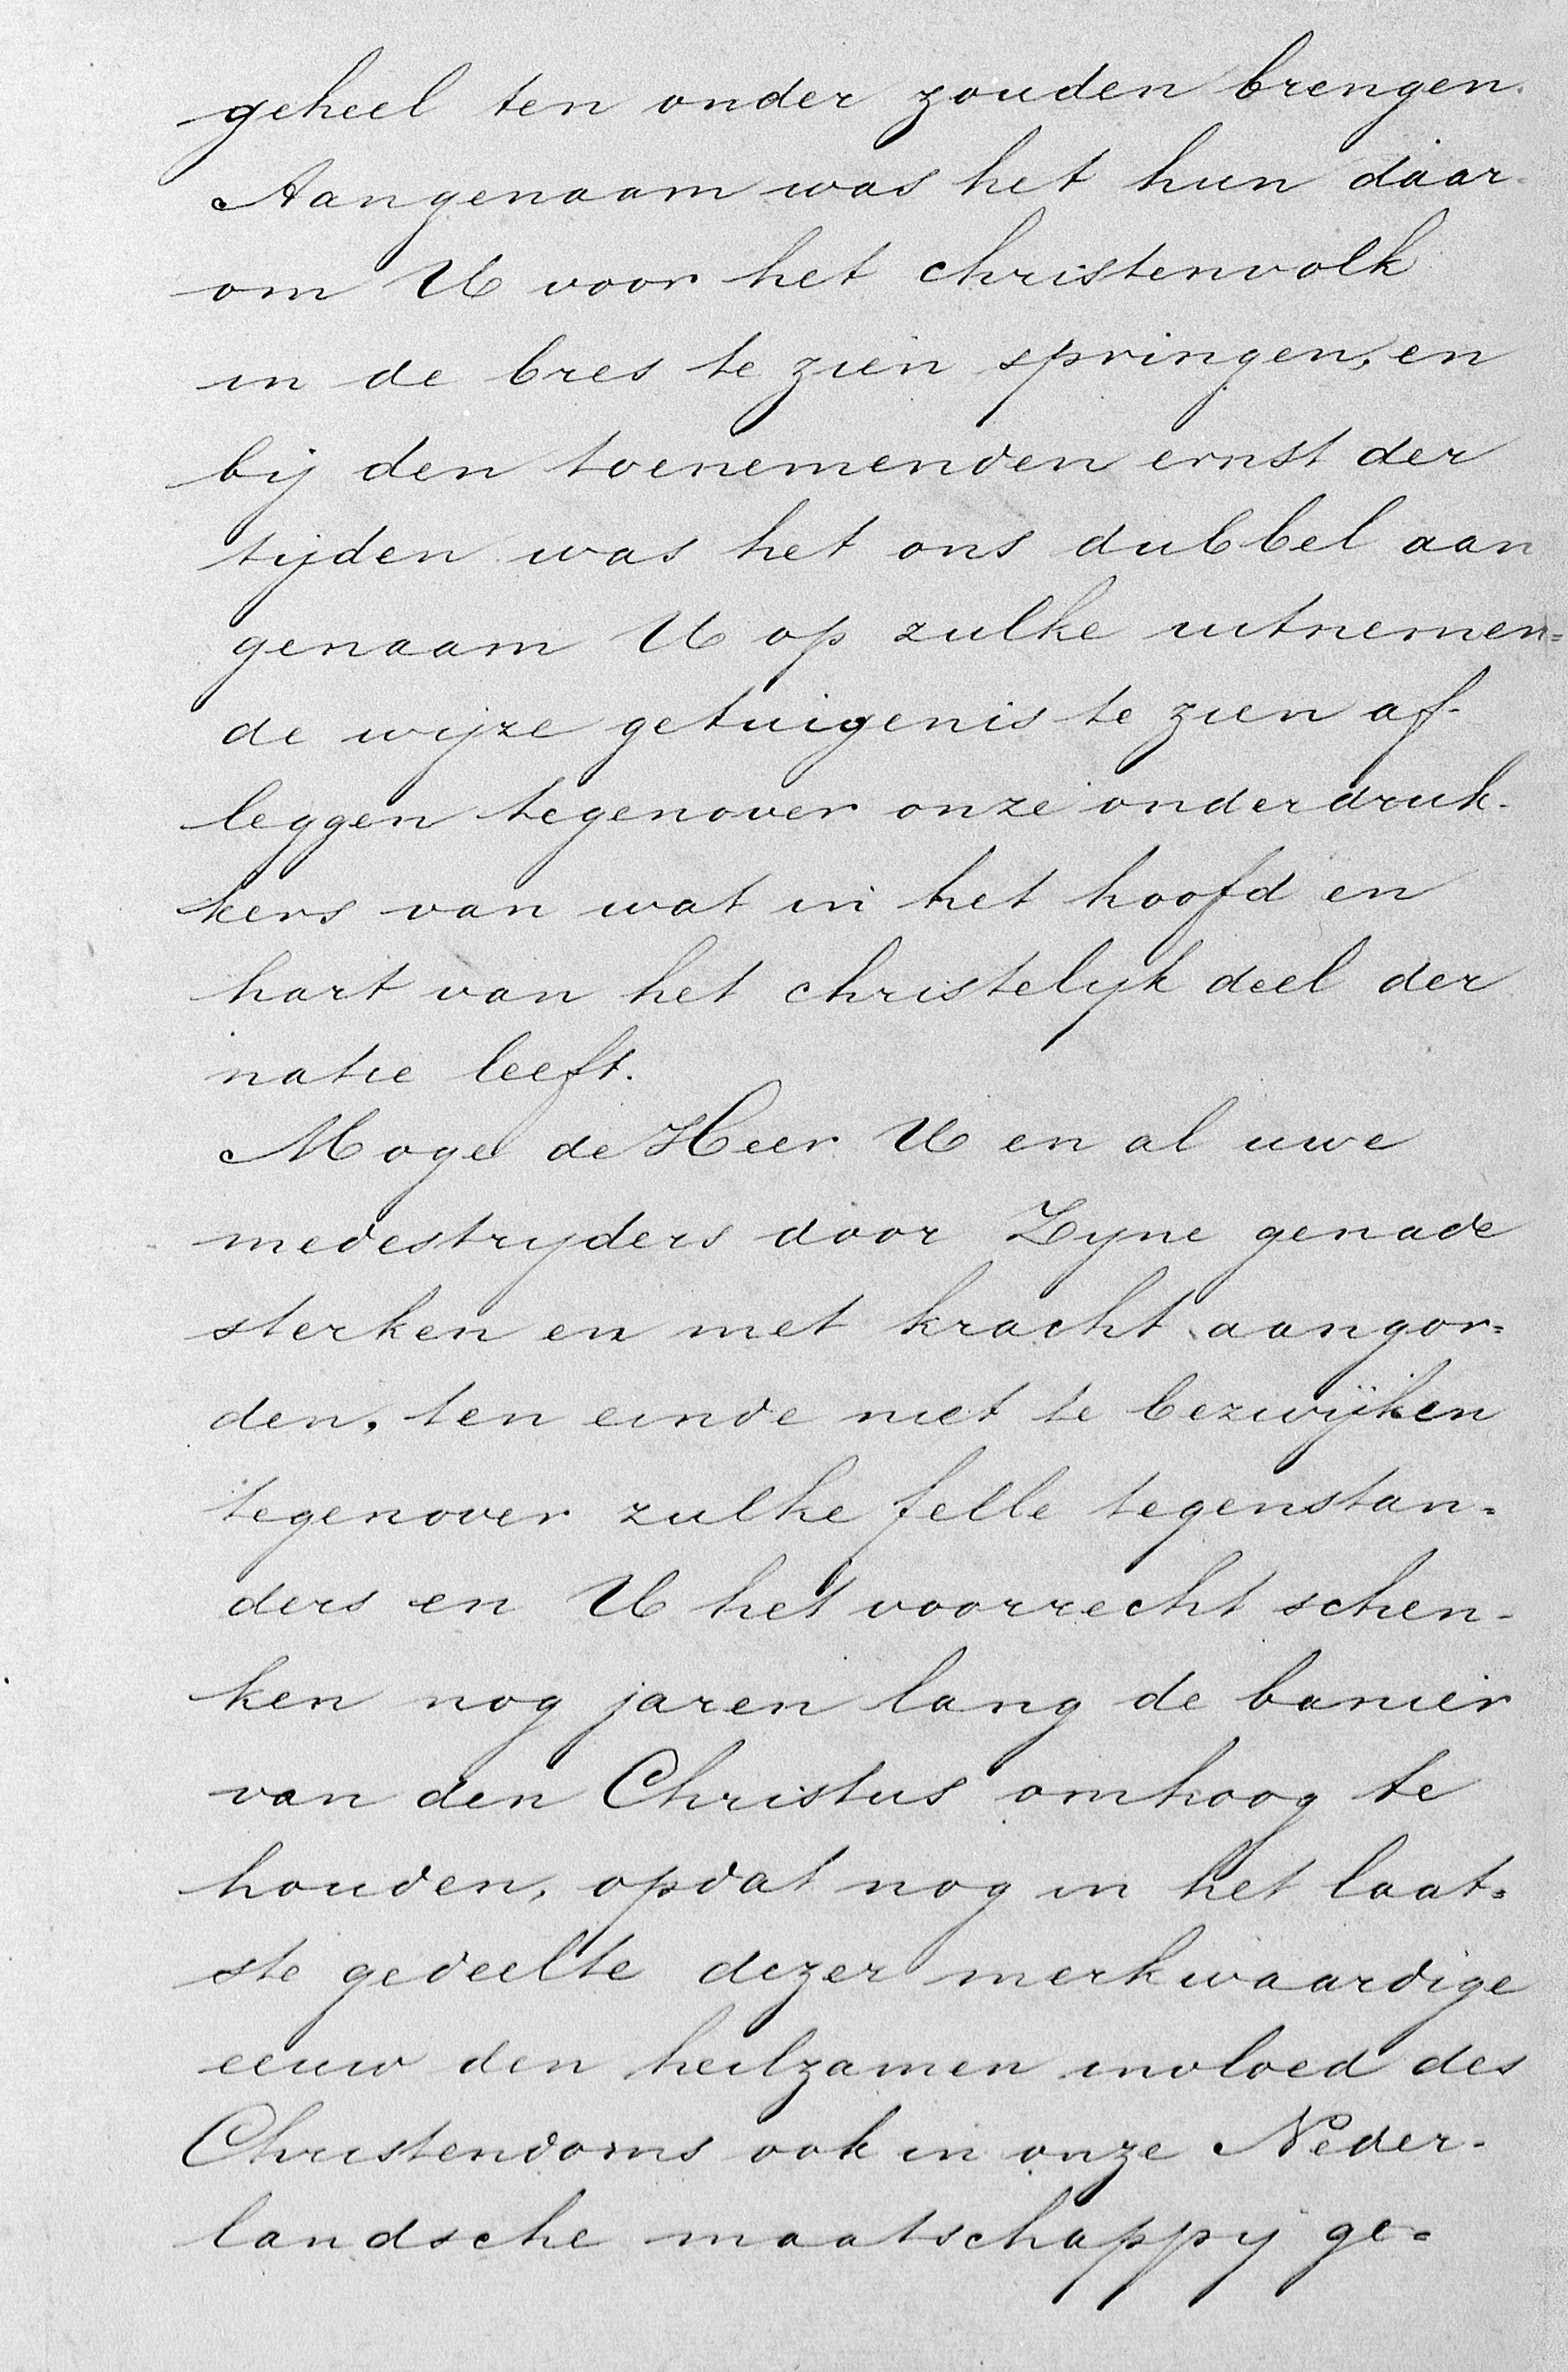 geheel ten onder zouden brengen.
Aangenaam was het hun daar-
om U voor het christenvolk
in de bres te zien springen, en
bij den toenemenden ernst der
tijden was het ons dubbel aan
genaam U op zulke uitnemen=
de wijze getuigenis te zien af-
leggen tegenover onze onderdruk-
kers van wat in het hoofd en
hart van het christelyk deel der
natie leeft.
Moge de Heer U en al uwe
medestryders door Zyne genade
sterken en met kracht aangor=
den, ten einde niet te bezwijken
tegenover zulke felle tegenstan=
ders en U het voorrecht schen-
ken nog jaren lang de banier
van den Christus omhoog te
houden, opdat nog in het laat=
ste gedeelte dezer merkwaardige
eeuw den heilzamen invloed des
Christendoms ook in onze Neder-
landsche maatschappy ge=